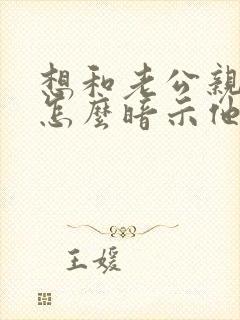 想和老公親
怎麼暗示他
王媛